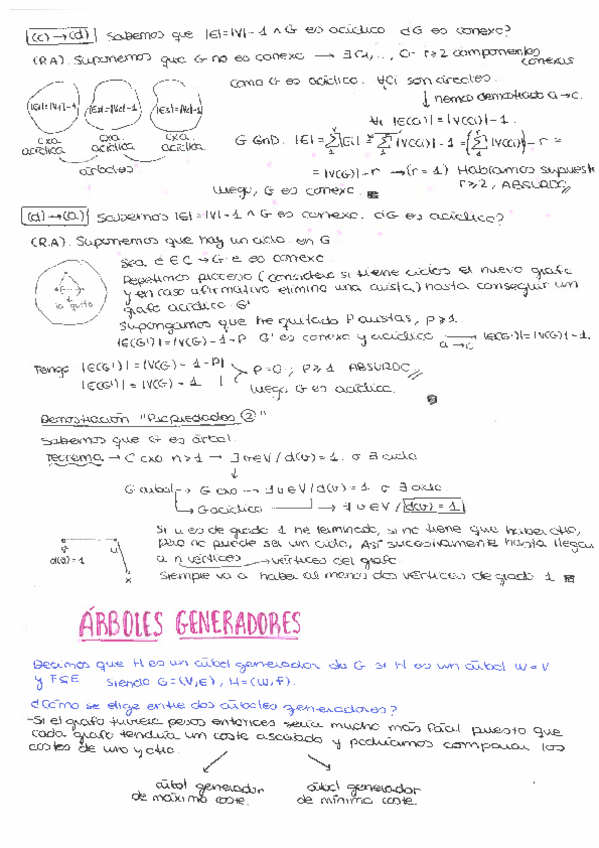 (c) → (d) Sabemos que |E|=|V|-1 ∧ G es acíclico ¿G es conexo?
(R.A). Suponemos que G no es conexo → ∃ C1,..., Cr r≥2 componentes conexas
Como G es acíclico. ∀Ci son árboles.
|E1|=|V1|-1 |E2|=|V2|-1 |E3|=|V3|-1
↓ hemos demostrado a→c.
∀i |E(Ci)|=|V(Ci)|-1.
cxa. acíclica cxa. acíclica cxa. acíclica
árboles
= |V(G)|-r → (r=1) Habíamos supuesto
r≥2, ABSURDO
luego, G es conexo.
(d) → (a) Sabemos |E|=|V|-1 ∧ G es conexo. ¿G es acíclico?
(R.A). Suponemos que hay un ciclo en G
Sea e ∈ C → G-e es conexo
Repetimos proceso (considero si tiene ciclos el nuevo grafo
y en caso afirmativo elimino una arista) hasta conseguir un
grafo acíclico G'
la quito
Supongamos que he quitado P aristas, P≥1.
|E(G')|=|V(G)-1-P G' es conexo y acíclico → a→c |E(G')|=|V(G)|-1.
Tengo |E(G')|=|V(G)-1-P|
|E(G')|=|V(G)-1 P=0 ; P≥1 ABSURDO
luego G es acíclico.
Demostración "Propiedades ②"
Sabemos que G es árbol.
Teorema → G cxo n>1 → ∃v∈V/d(v)=1. o ∃ciclo
G árbol → G cxo → ∃v∈V/d(v)=1 o ∃ciclo.
→ G acíclico → ∃v∈V/d(v)=1
Si u es de grado 1 he terminado, si no tiene que haber otro,
v u
d(v)=1
pero no puede ser un ciclo, Así sucesivamente hasta llegar
a n vértices → vértices del grafo
x
Siempre va a haber al menos dos vértices de grado 1
ÁRBOLES GENERADORES
Decimos que H es un árbol generador de G si H es un árbol W=V
y F⊆E siendo G=(V,E), H=(W,F).
¿Cómo se elige entre dos árboles generadores?
-Si el grafo tuviera pesos entonces sería mucho más fácil puesto que
cada grafo tendría un coste asociado y podríamos comparar los
costes de uno y otro.
árbol generador de máximo coste.
árbol generador de mínimo coste.